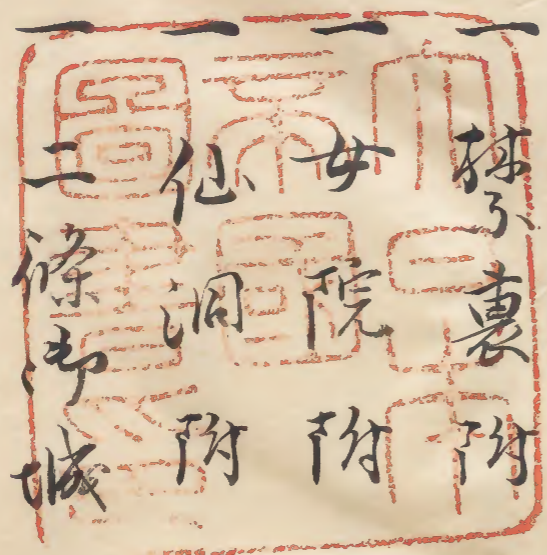 一禁裏附
一女院附
一仙洞附
一二條御城